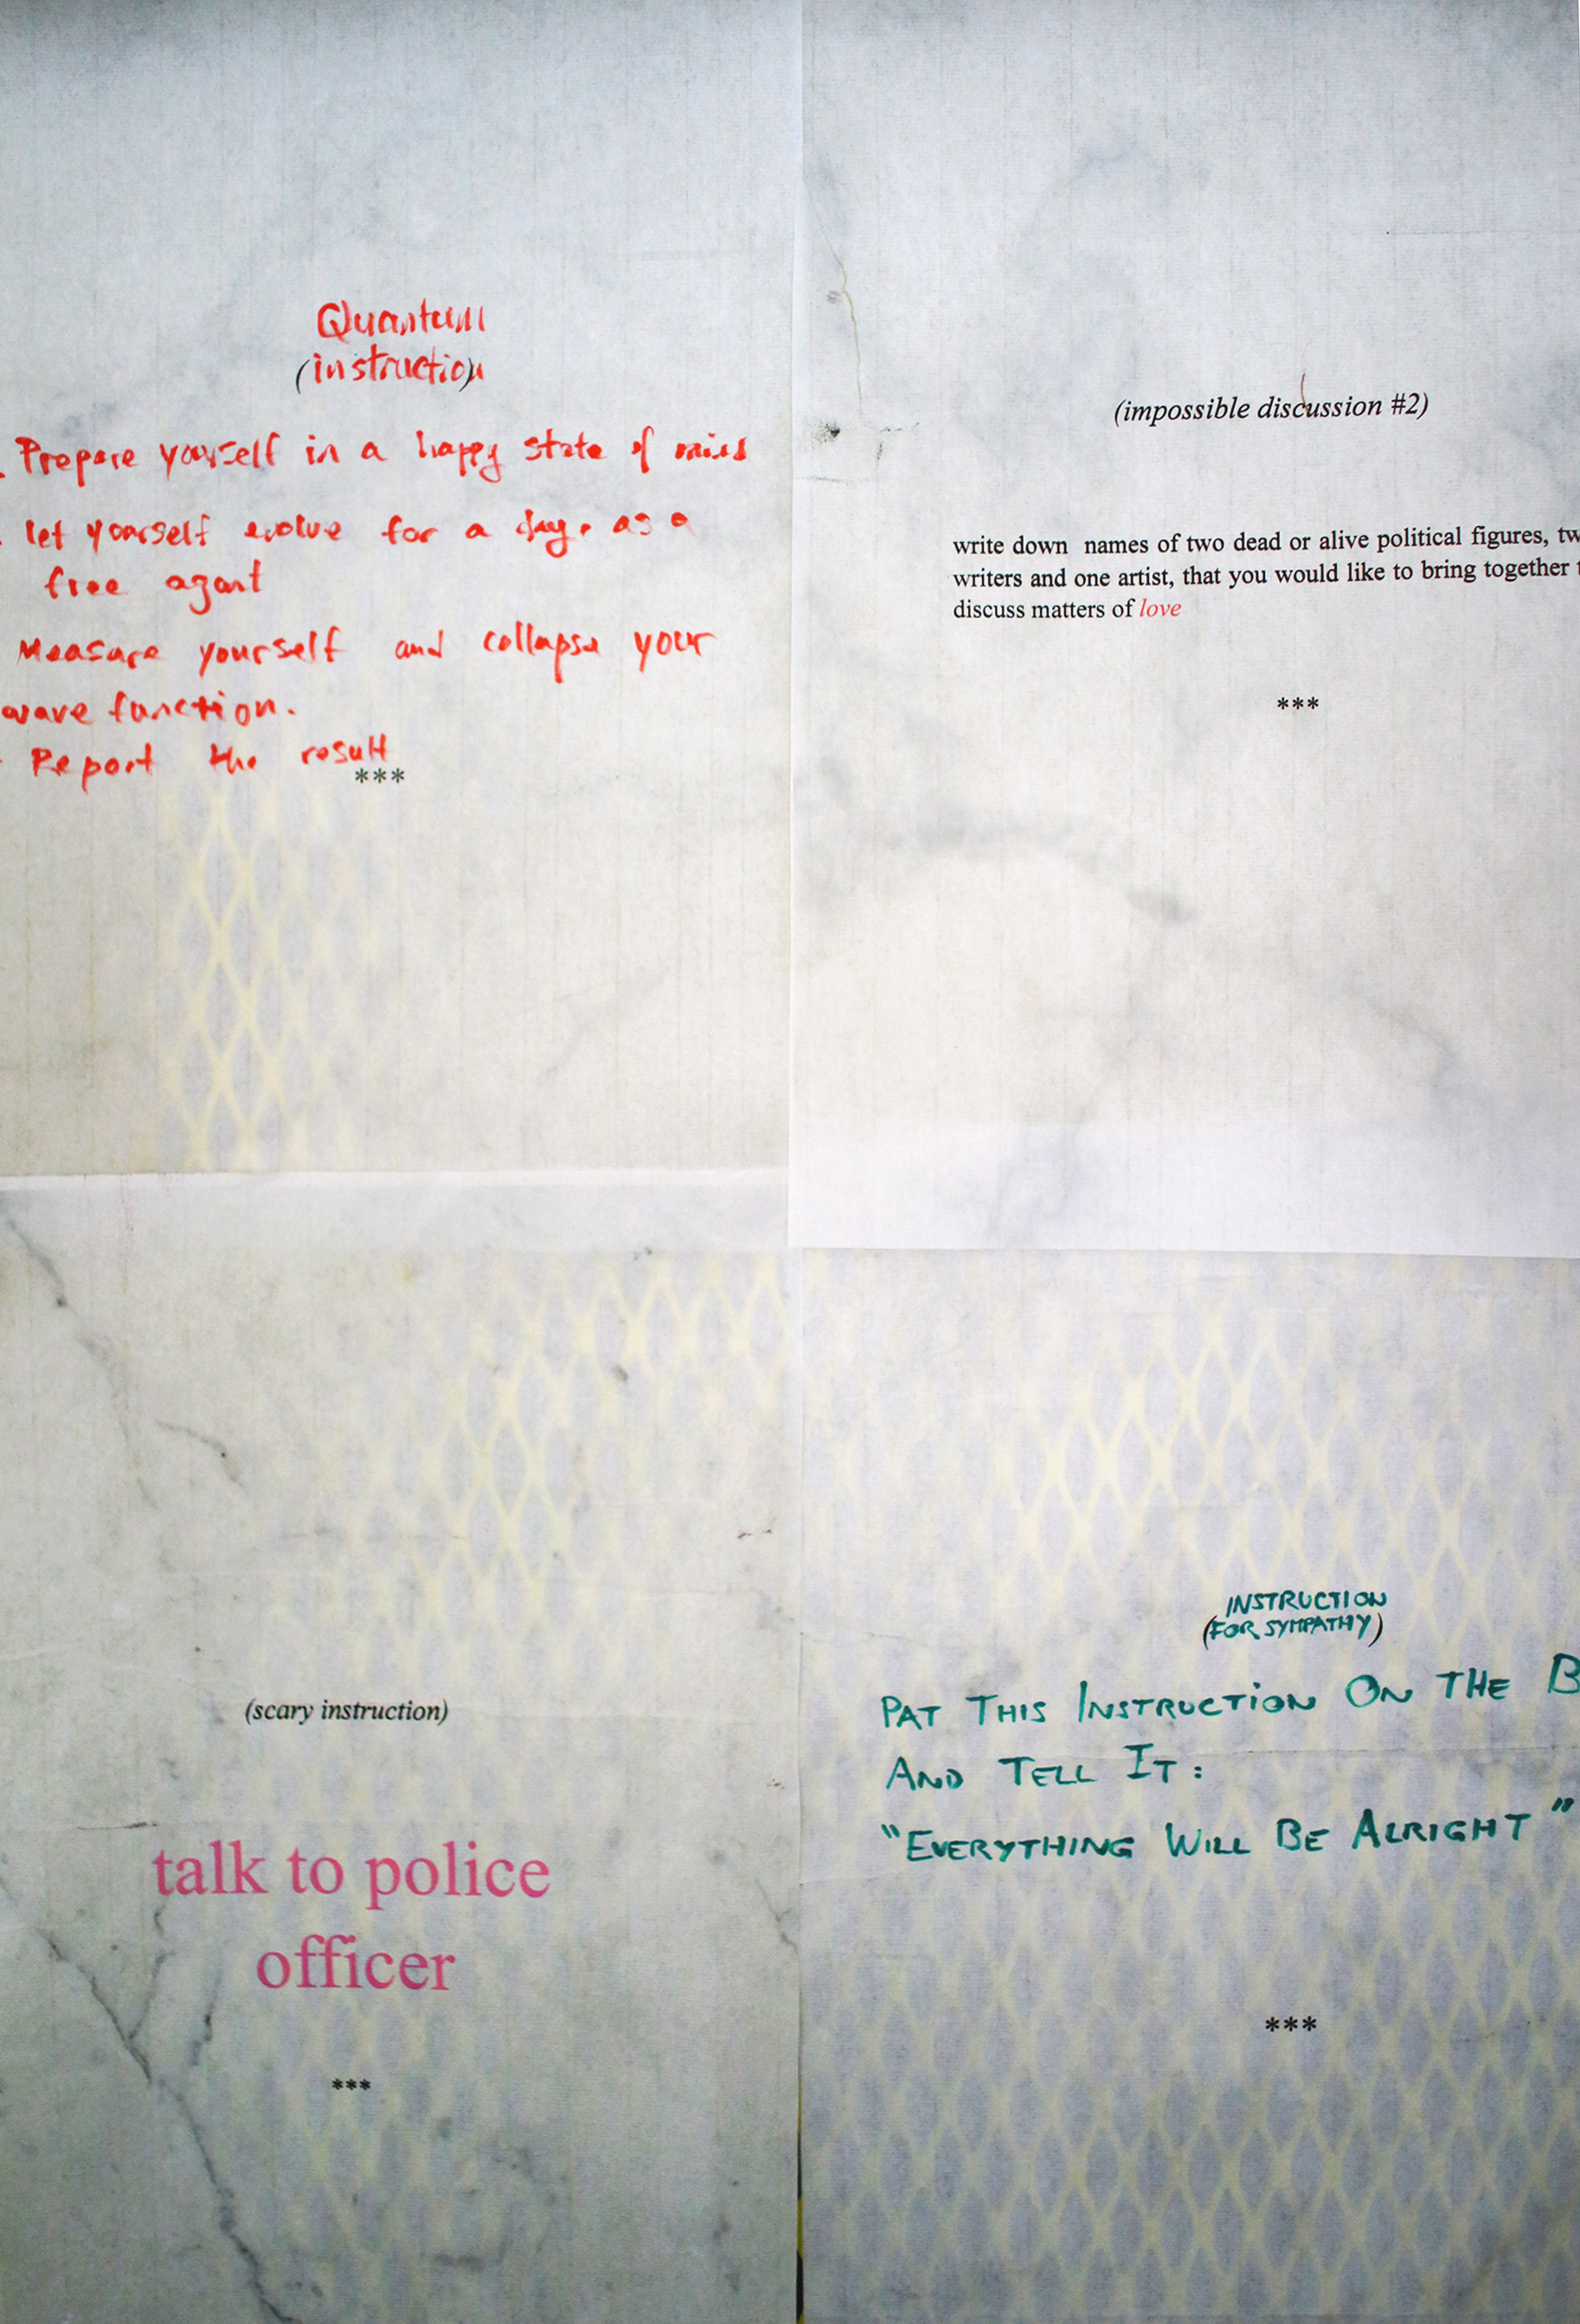 Quantum
(instruction)
. Prepare yourself in a happy state of mind
. let yourself evolve for a day, as a
free agent
Measure yourself and collapse your
wave function.
- Report the result
***
(impossible discussion #2)
write down names of two dead or alive political figures,
writers and one artist, that you would like to bring together
discuss matters of love
***
(scary instruction)
talk to police
officer
***
INSTRUCTION
(FOR SYMPATHY)
PAT THIS INSTRUCTION ON THE
AND TELL IT:
"EVERYTHING WILL BE ALRIGHT"
***